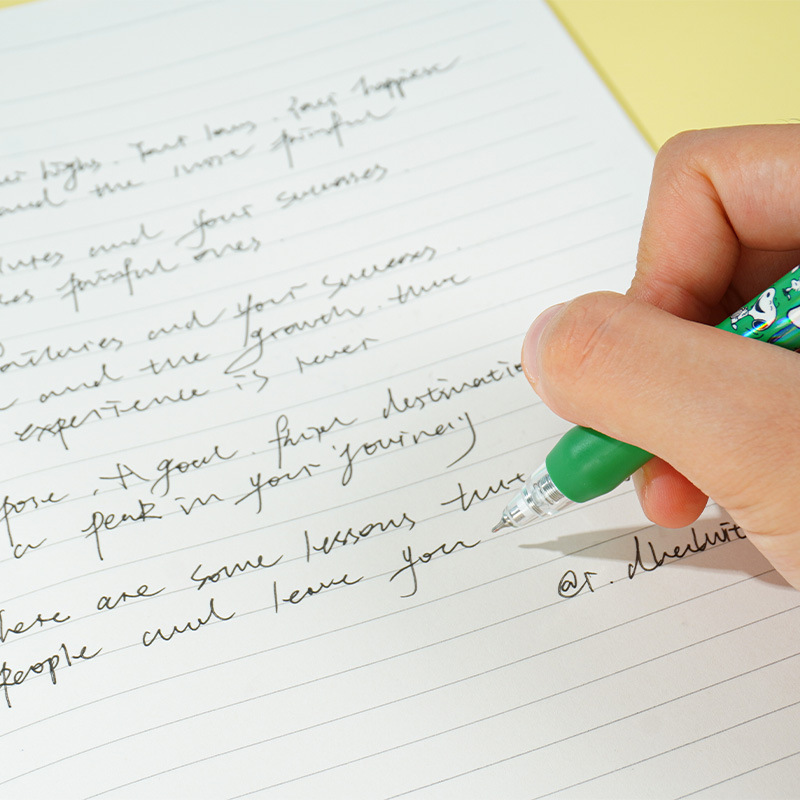 highs. Your lows. Your happiness
and the most painful
and your successes
painful ones
failures and your successes.
and the growth. that
experience is never
A goal. final destination
a peak in your journey
There are some lessons that
people and leave you
@r.